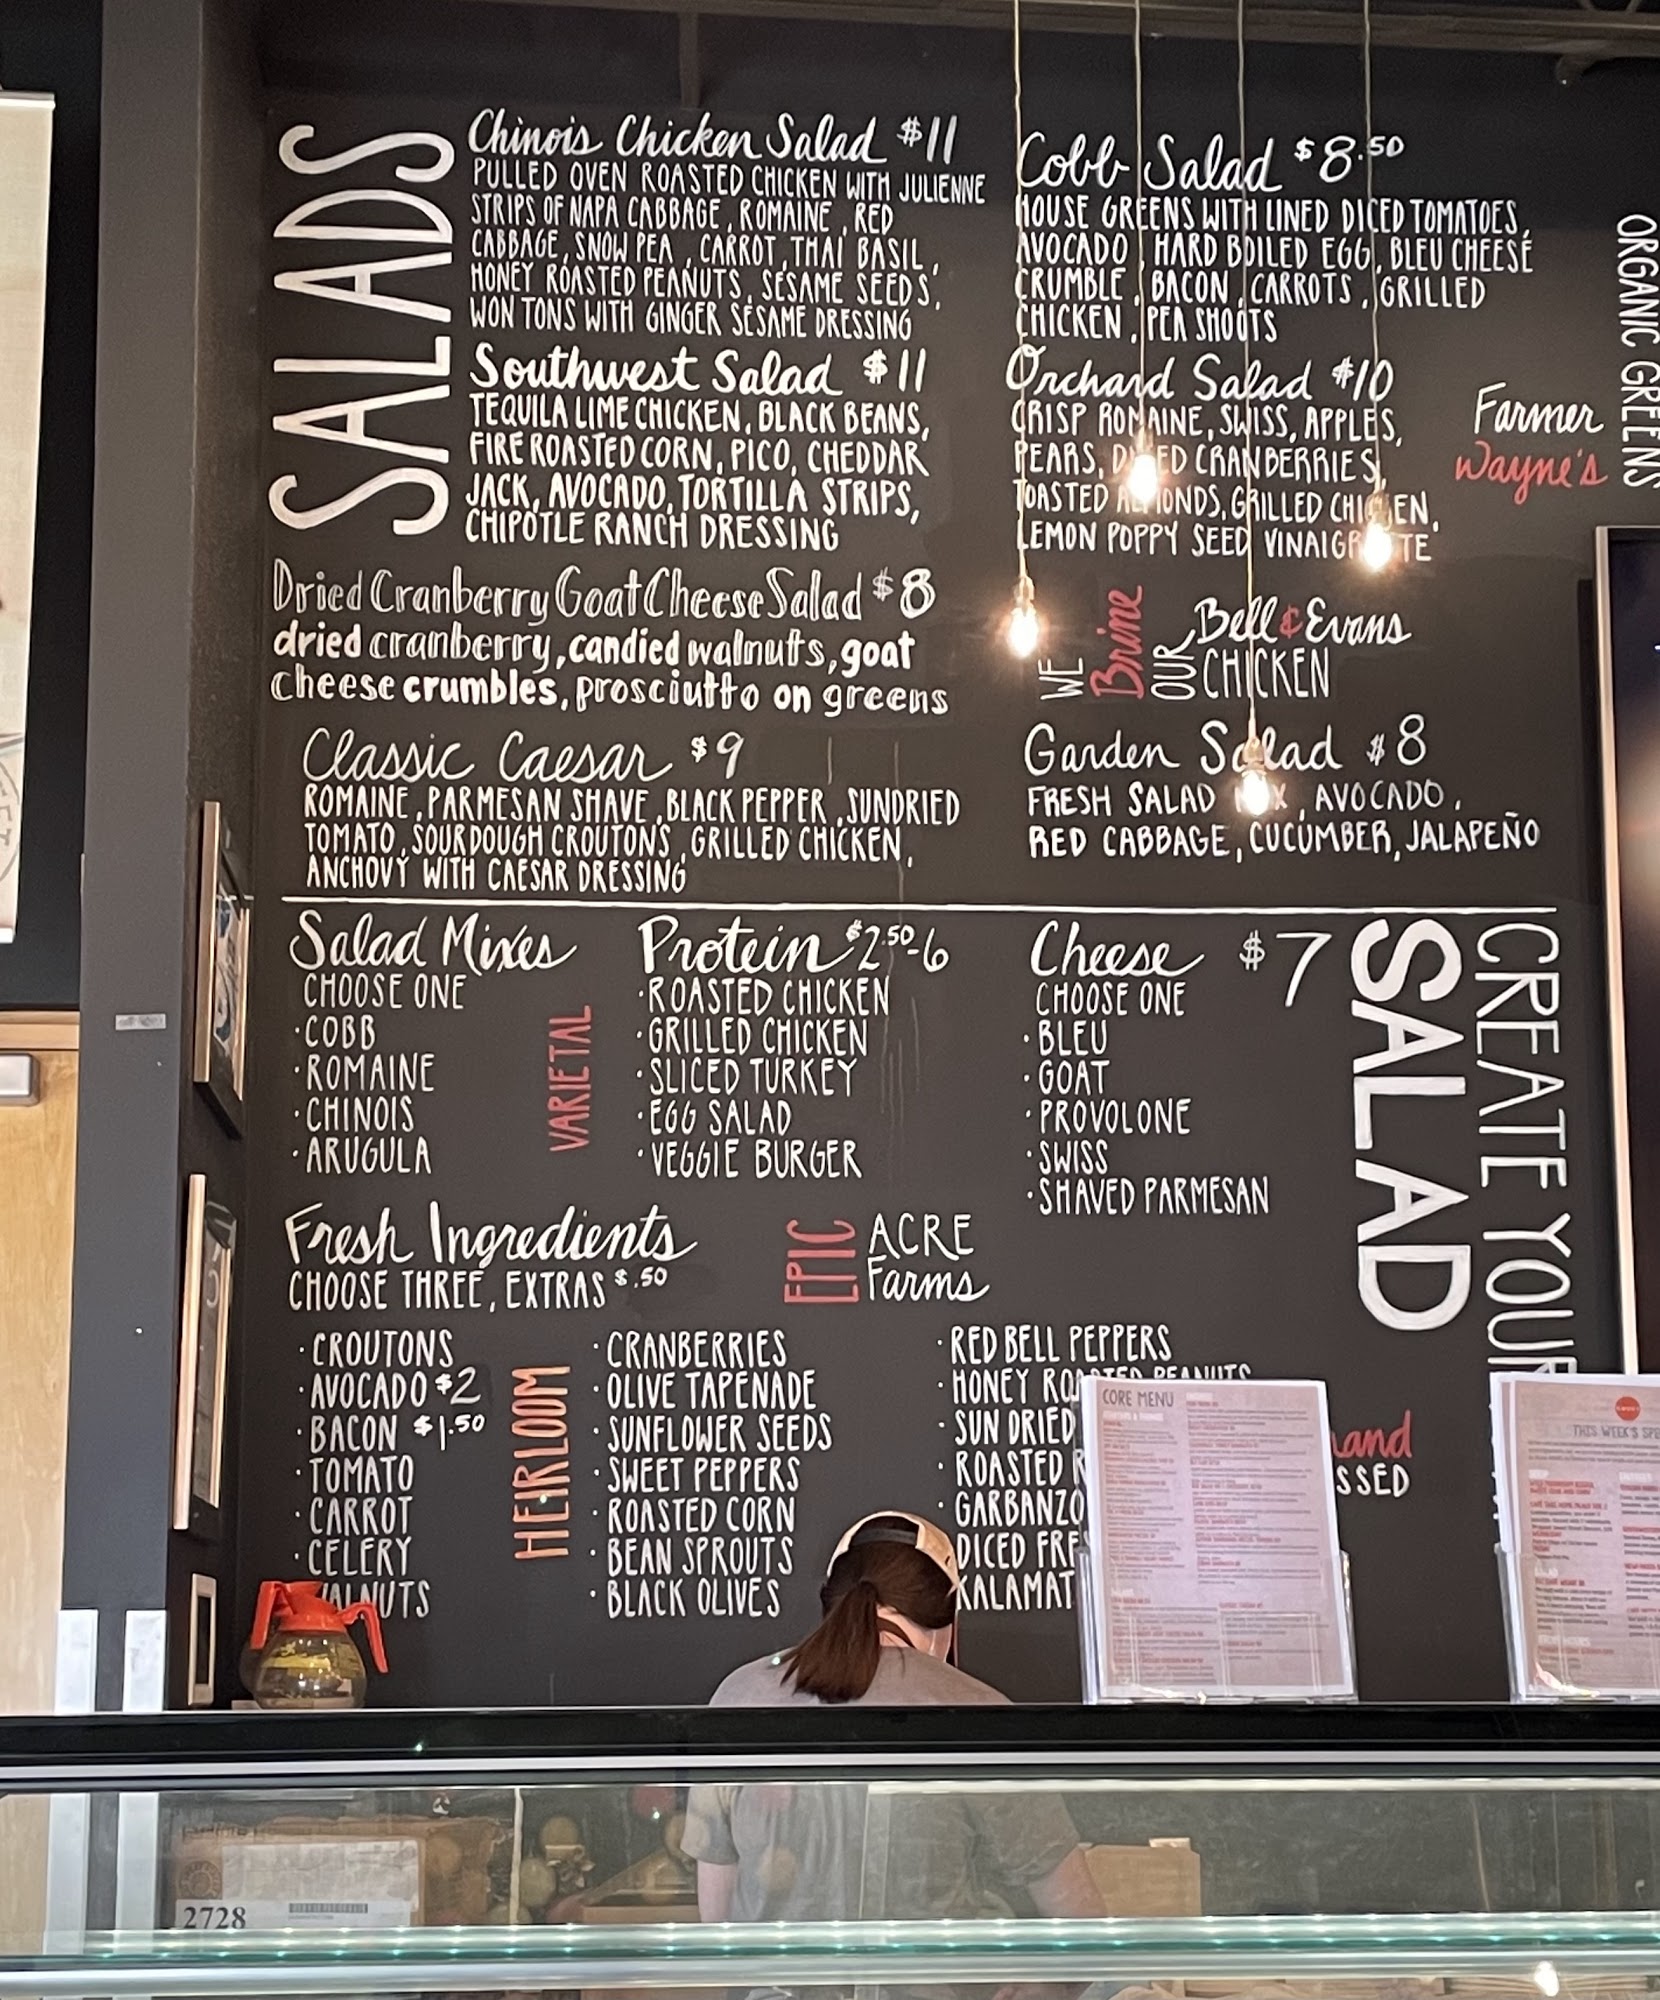 SALADS
Chinois Chicken Salad $11
PULLED OVEN ROASTED CHICKEN WITH JULIENNE
STRIPS OF NAPA CABBAGE, ROMAINE, RED
CABBAGE, SNOW PEA, CARROT, THAI BASIL,
HONEY ROASTED PEANUTS, SESAME SEEDS,
WON TONS WITH GINGER SESAME DRESSING
Southwest Salad $11
TEQUILA LIME CHICKEN, BLACK BEANS,
FIRE ROASTED CORN, PICO, CHEDDAR
JACK, AVOCADO, TORTILLA STRIPS,
CHIPOTLE RANCH DRESSING
Dried Cranberry Goat Cheese Salad $8
dried cranberry, candied walnuts, goat
cheese crumbles, prosciutto on greens
Classic Caesar $9
ROMAINE, PARMESAN SHAVE, BLACK PEPPER, SUNDRIED
TOMATO, SOURDOUGH CROUTONS, GRILLED CHICKEN,
ANCHOVY WITH CAESAR DRESSING
Cobb Salad $8.50
HOUSE GREENS WITH LINED DICED TOMATOES,
AVOCADO, HARD BOILED EGG, BLEU CHEESE
CRUMBLE, BACON, CARROTS, GRILLED
CHICKEN, PEA SHOOTS
Orchard Salad $10
CRISP ROMAINE, SWISS, APPLES,
PEARS, DRIED CRANBERRIES,
TOASTED ALMONDS, GRILLED CHICKEN,
LEMON POPPY SEED VINAIGRETTE
Farmer
Wayne's
ORGANIC GREENS
WE Brine OUR Bell & Evans
CHICKEN
Garden Salad $8
FRESH SALAD MIX, AVOCADO,
RED CABBAGE, CUCUMBER, JALAPEÑO
CREATE YOUR
SALAD
Salad Mixes
CHOOSE ONE
·COBB
·ROMAINE
·CHINOIS
·ARUGULA
VARIETAL
Protein $2.50-6
·ROASTED CHICKEN
·GRILLED CHICKEN
·SLICED TURKEY
·EGG SALAD
·VEGGIE BURGER
Cheese $7
CHOOSE ONE
·BLEU
·GOAT
·PROVOLONE
·SWISS
·SHAVED PARMESAN
Fresh Ingredients
CHOOSE THREE, EXTRAS $.50
EPIC ACRE
Farms
·CROUTONS
·AVOCADO $2
·BACON $1.50
·TOMATO
·CARROT
·CELERY
WALNUTS
HEIRLOOM
·CRANBERRIES
·OLIVE TAPENADE
·SUNFLOWER SEEDS
·SWEET PEPPERS
·ROASTED CORN
·BEAN SPROUTS
·BLACK OLIVES
·RED BELL PEPPERS
·HONEY ROASTED PEANUTS
·SUN DRIED
·ROASTED R
·GARBANZO
DICED FRE
KALAMAT
and
SSED
CORE MENU
THIS WEEK'S SPE
2728